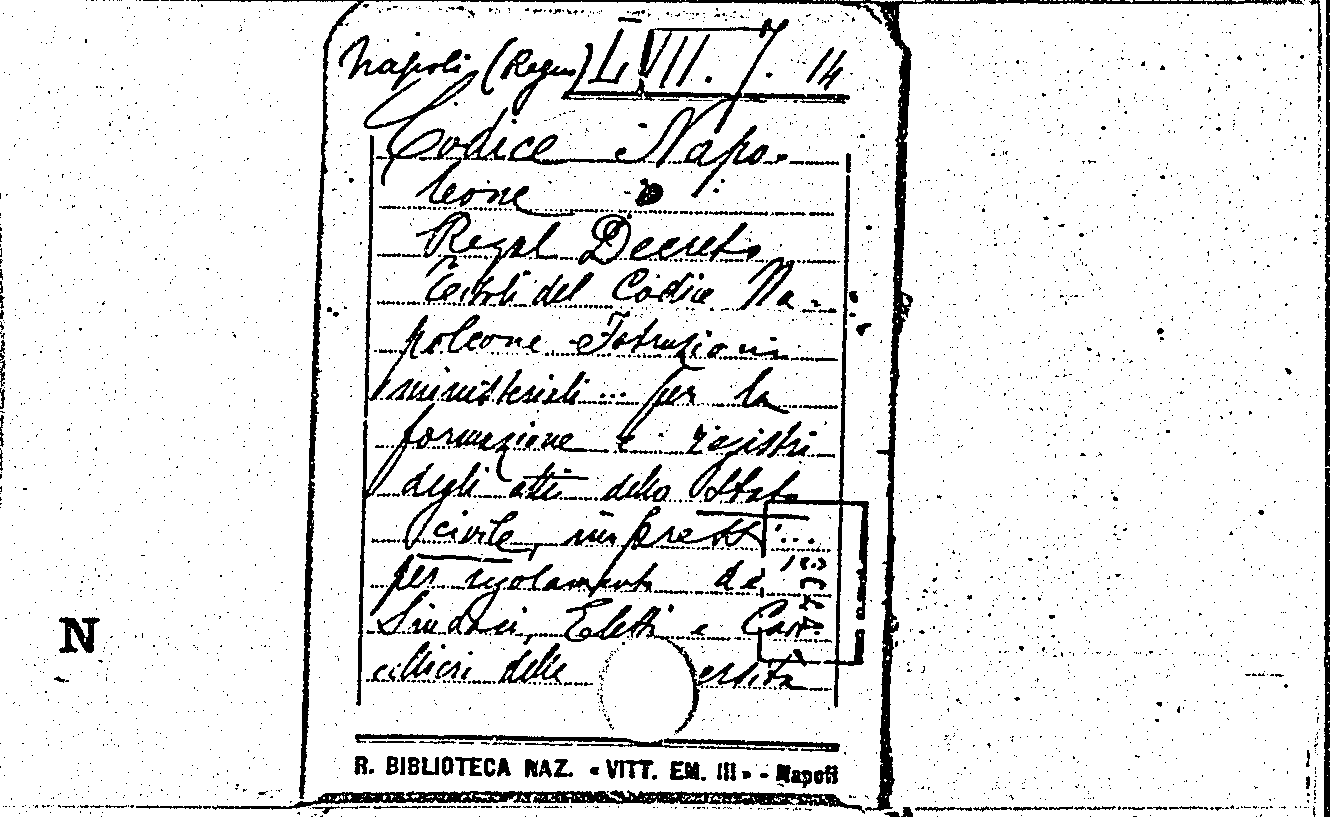 Napoli (Regno) LVIII. 7. 14
Codice Napo-
leone
Regal Decreto
Titoli del Codice Na-
poleone e Istruzioni
ministeriali ... per la
formazione e registri
degli atti dello Stato
civile, impressi ...
per regolamento de'
Sindaci, Eletti e Can-
cellieri delle ersità
N
R. BIBLIOTECA NAZ. « VITT. EM. III » - Napoli